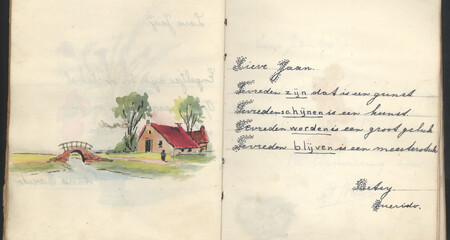 Lieve Jaan.
Tevreden zijn dat is een gunst
Tevreden schijnen is een kunst
Tevreden worden is een groot geluk
Tevreden blijven is een meesterstuk
Betsy.
Querido.